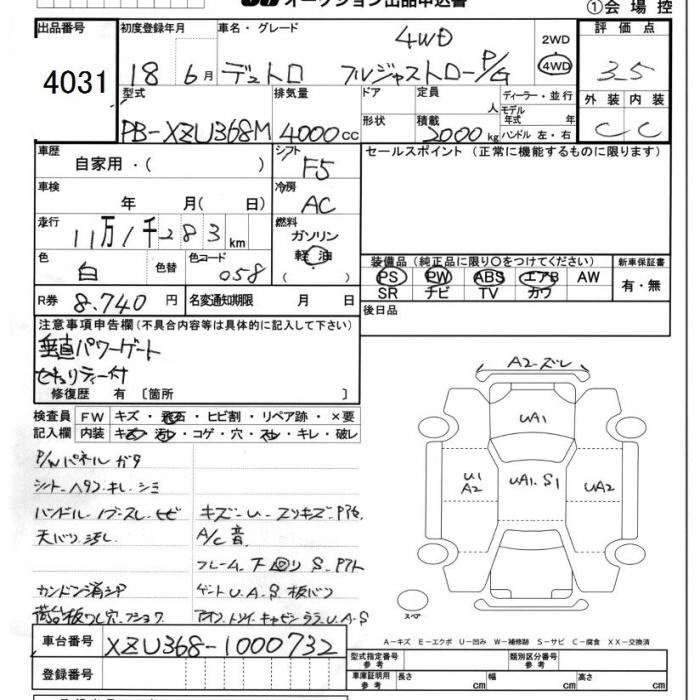 オークション出品申込書
①会場控
出品番号
4031
初度登録年月
18 6月
車名・グレード
4WD
デュトロ フルジャストローP/G
2WD
4WD
評価点
3.5
外装 内装
C C
型式
PB-XZU368M
排気量
4000cc
ドア
形状
定員
人
積載
2000kg
ディーラー・並行
モデル年式 年
ハンドル 左・右
車歴
自家用・( )
シフト
F5
セールスポイント (正常に機能するものに限ります)
車検
年 月( 日)
冷房
AC
走行
11万1千283km
燃料
ガソリン
軽油
( )
色
白
色替
色コード
058
装備品(純正品に限り○をつけてください)
PS PW ABS エアB AW
SR ナビ TV カワ
新車保証書
有・無
R券
8.740円
名変通知期限 月 日
後日品
注意事項申告欄(不具合内容等は具体的に記入して下さい)
垂直パワーゲート
セキュリティー付
修復歴 有 〔箇所 〕
検査員
記入欄
FW キズ・飛石・ヒビ割・リペア跡・×要
内装 キズ・汚れ・コゲ・穴・スレ・キレ・破レ
P/Wパネルガタ
シート ヘタリ キレ シミ
ハンドル ノブスレ
天バリ 汚レ
A/C音
フレーム 下回り S
荷台板ワレ穴
A2-ズレ
UA1
U1
A2
UA1.S1
UA2
スペア
A-キズ E-エクボ U-凹み W-補修跡 S-サビ C-腐食 XX-交換済
車台番号
XZU368-1000732
登録番号
型式指定番号
参考
類別区分番号
参考
車庫証明用
参考
長さ cm
幅 cm
高さ cm